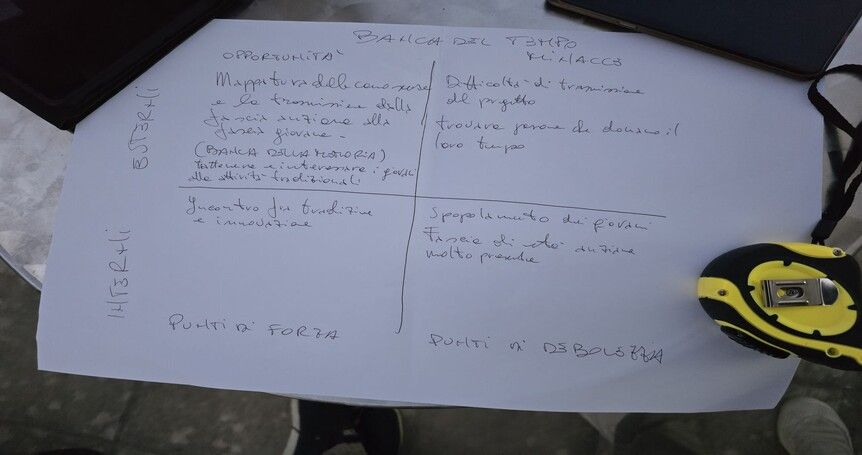 BANCA DEL TEMPO
OPPORTUNITÀ
Mappatura delle conoscenze
e la trasmissione dalla
fascia anziana alla
fascia giovane.
(BANCA DELLA MEMORIA)
trattenere e interessare i giovani
alle attività tradizionali
MINACCE
Difficoltà di trasmissione
del progetto
trovare persone che donano il
loro tempo
ESTERNI
Incontro fra tradizione
e innovazione
PUNTI DI FORZA
Spopolamento dei giovani
Fascie di età anziane
molto presente
PUNTI DI DEBOLEZZA
INTERNI